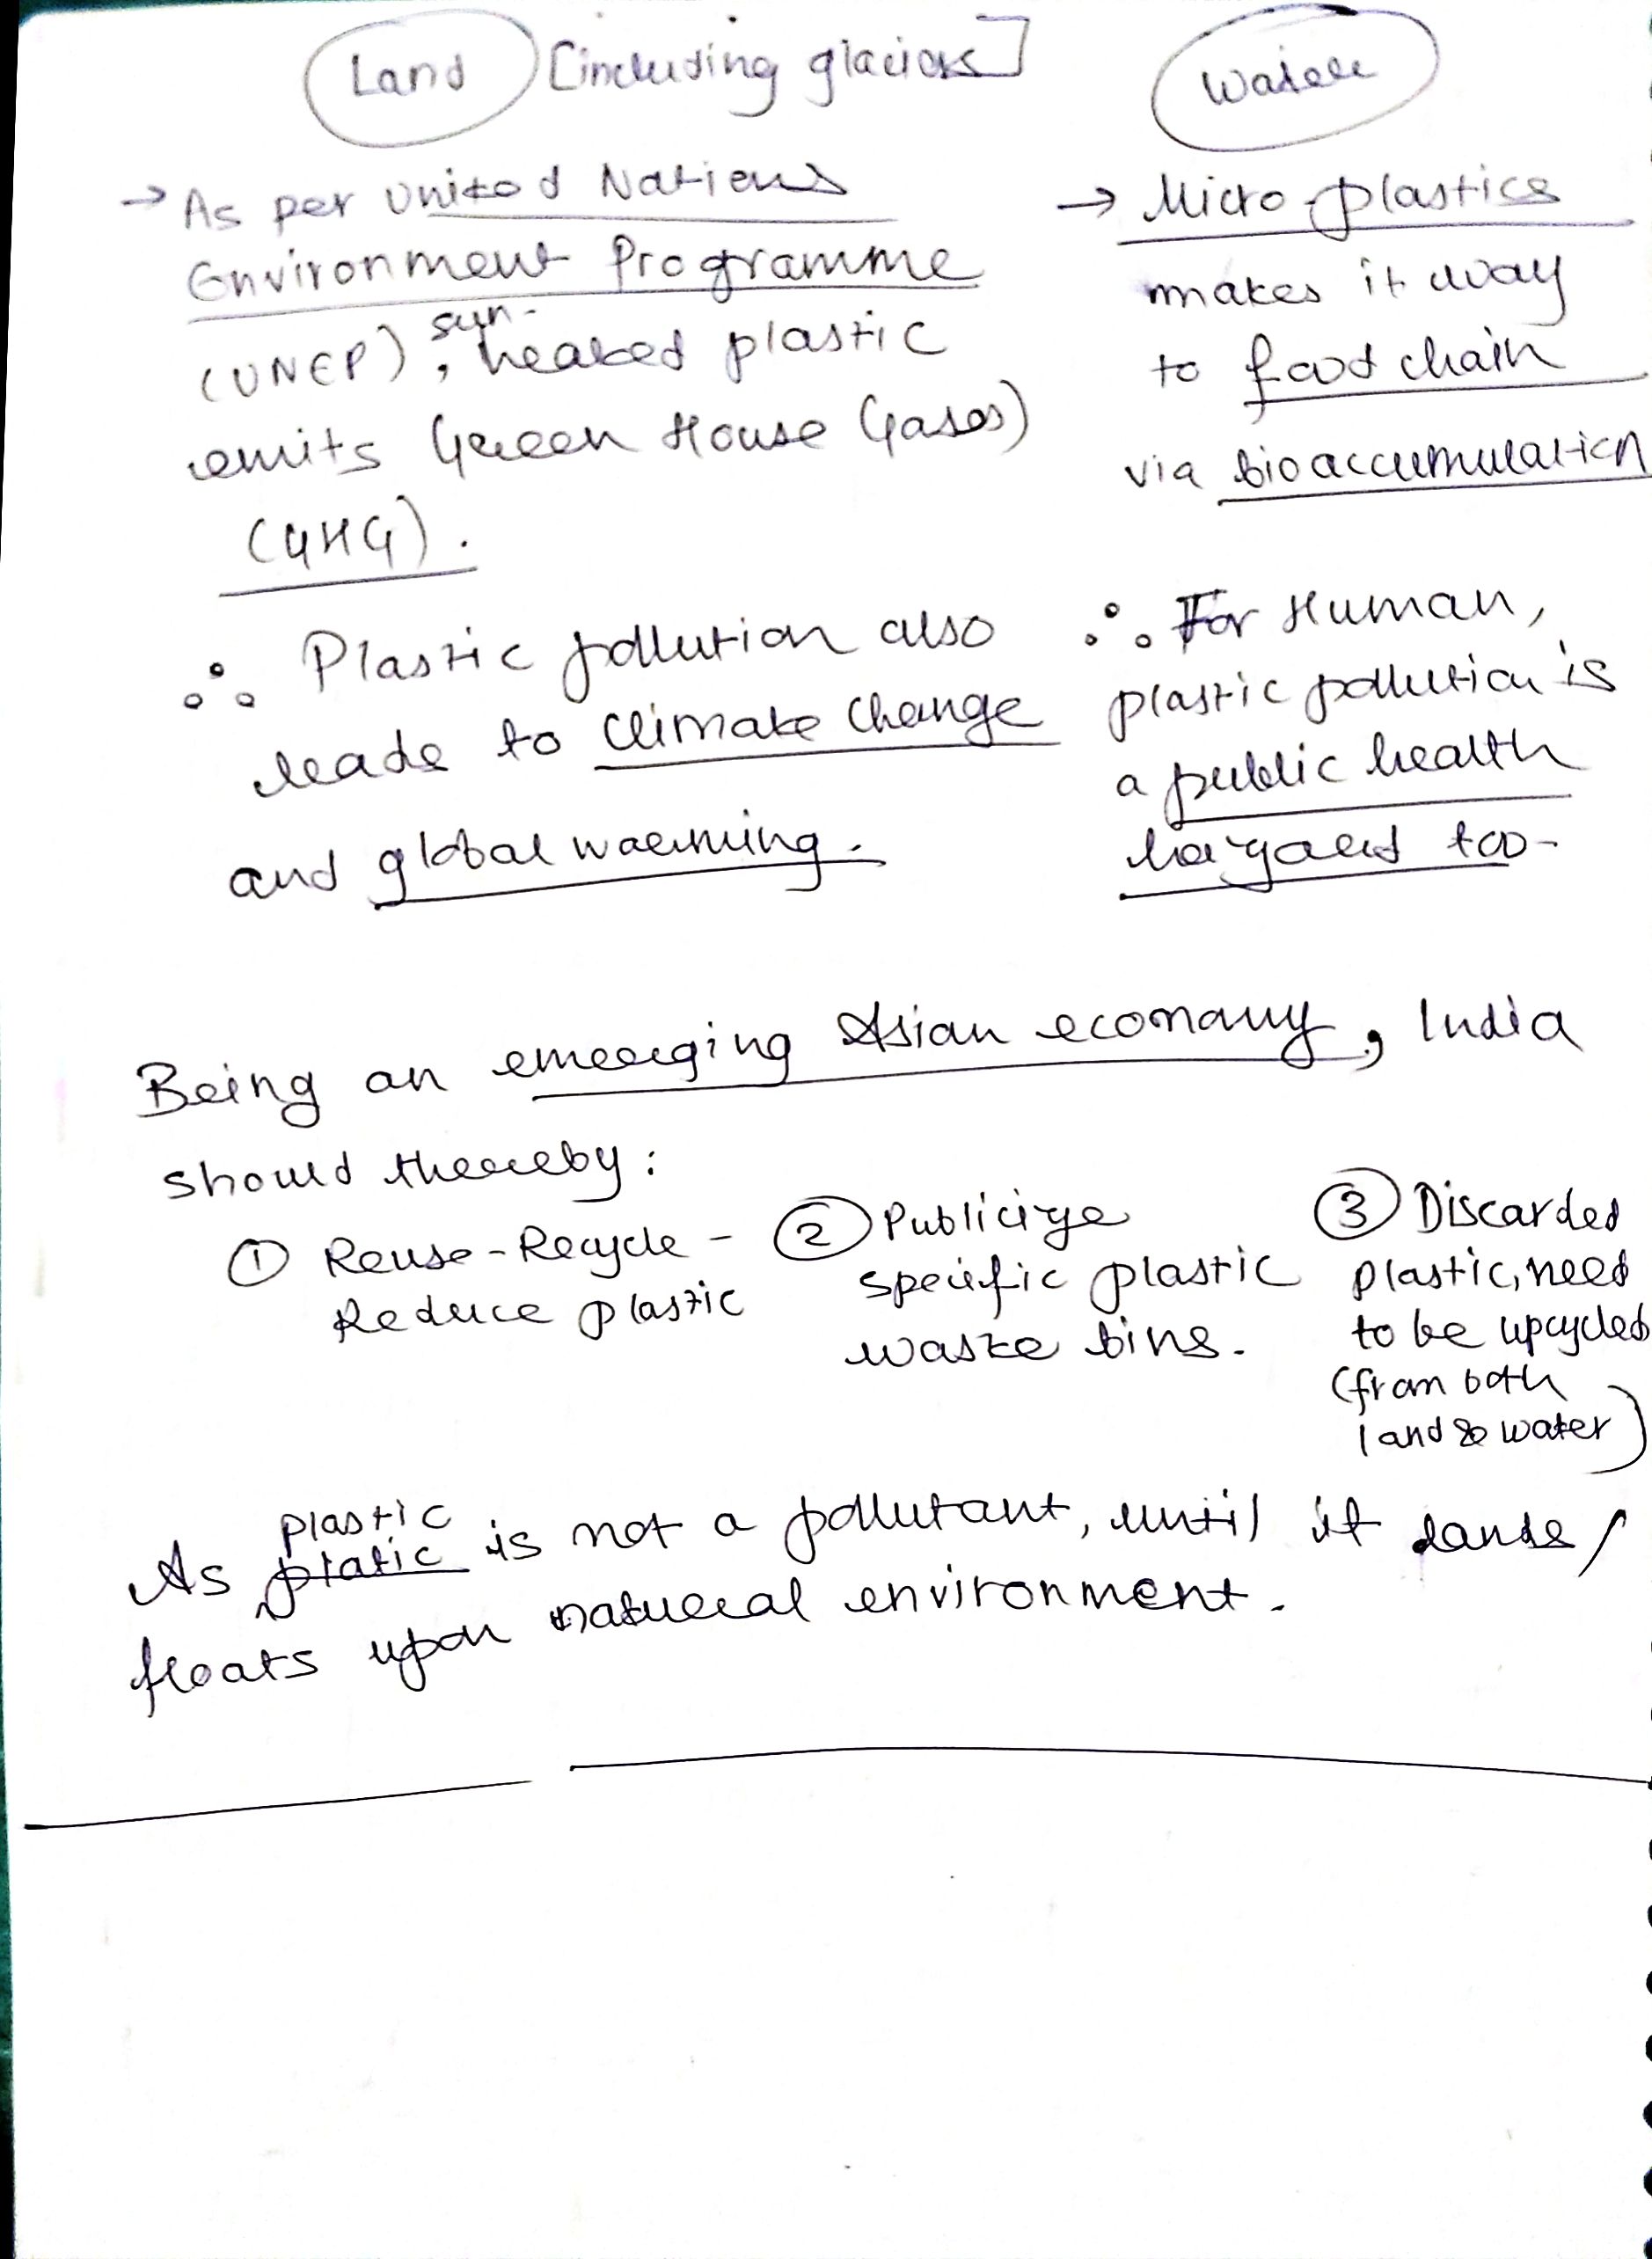 Land [including glaciers]
→ As per United Nations
Environment Programme
(UNEP), sun-heated plastic
emits Green House Gases)
(GHG).
∴ Plastic pollution also
leads to climate change
and global warming.
Water
→ Micro-plastics
makes it way
to food chain
via bioaccumulation
∴ For Human,
plastic pollution is
a public health
hazard too.
Being an emerging Asian economy, India
should thereby:
① Reuse-Recycle-
Reduce plastic
② Publicize
specific plastic
waste bins.
③ Discarded
plastic, need
to be upcycled
(from both
land & water)
As platic plastic is not a pollutant, until it lands/
floats upon natural environment.